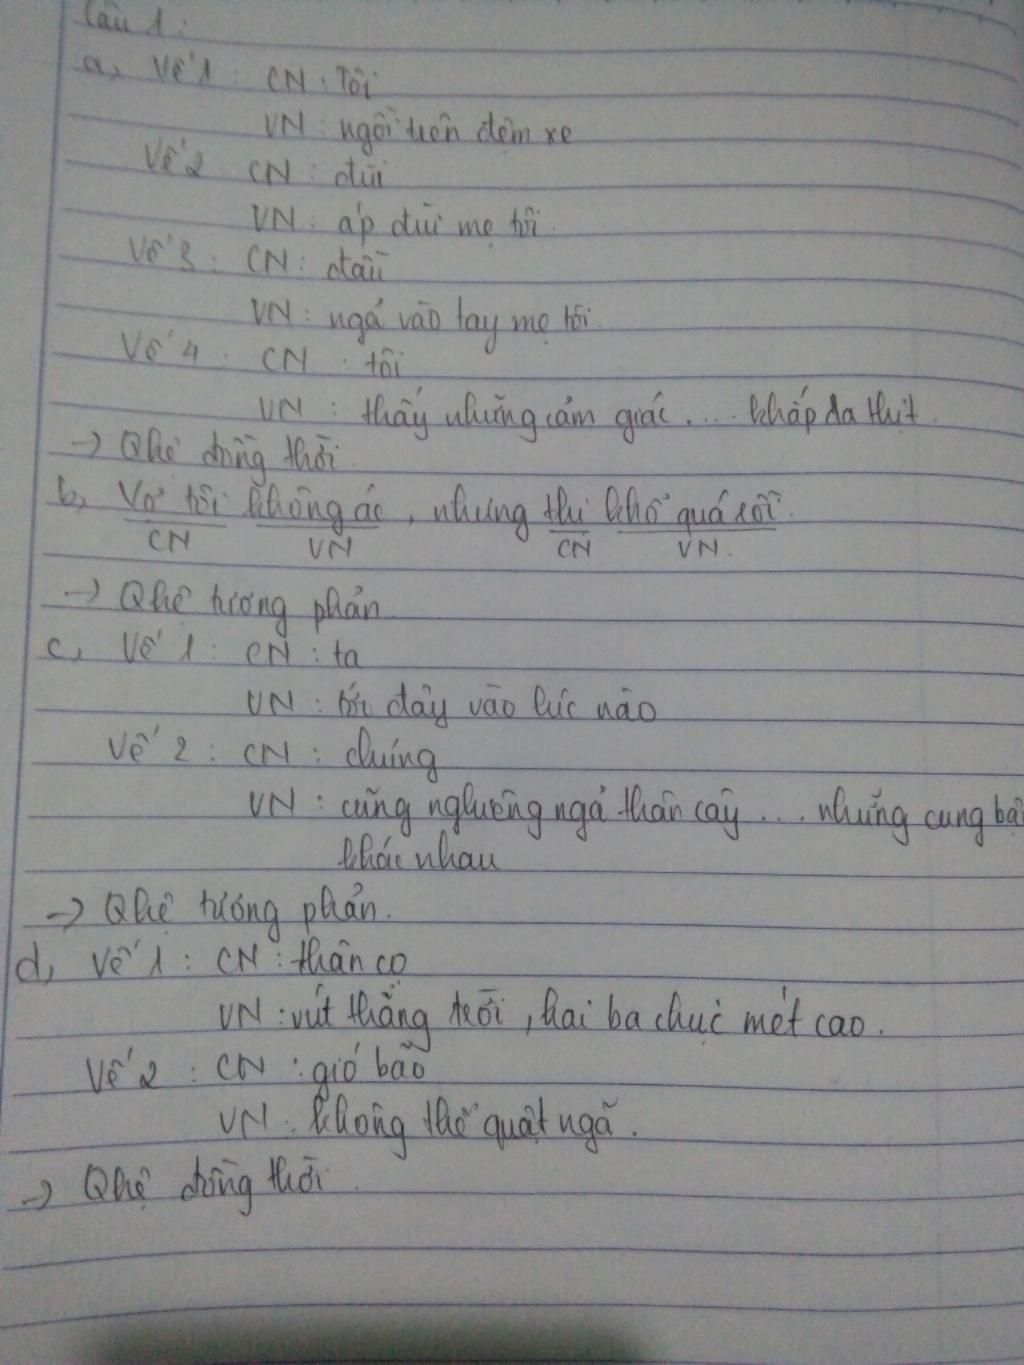 Câu 1:
a, Vế 1: CN: Tôi
VN: ngồi trên đệm xe
Vế 2 CN: đùi
VN: áp đùi mẹ tôi.
Vế 3: CN: đầu
VN: ngả vào tay mẹ tôi.
Vế 4: CN: tôi
VN: thấy những cảm giác.... khắp da thịt.
-> Qhệ đồng thời.
b, Vợ tôi không ác, nhưng thị khổ quá rồi.
CN VN CN VN.
-> Qhệ tương phản
c, Vế 1: CN: ta
VN: tới đây vào lúc nào
Vế 2: CN: chúng
VN: cũng nghiêng ngả thân cây.... những cung bậc
khác nhau
-> Qhệ tương phản.
d, Vế 1: CN: thân cọ
VN: vút thẳng trời, hai ba chục mét cao.
Vế 2: CN: gió bão
VN: không thể quật ngã.
-> Qhệ đồng thời.